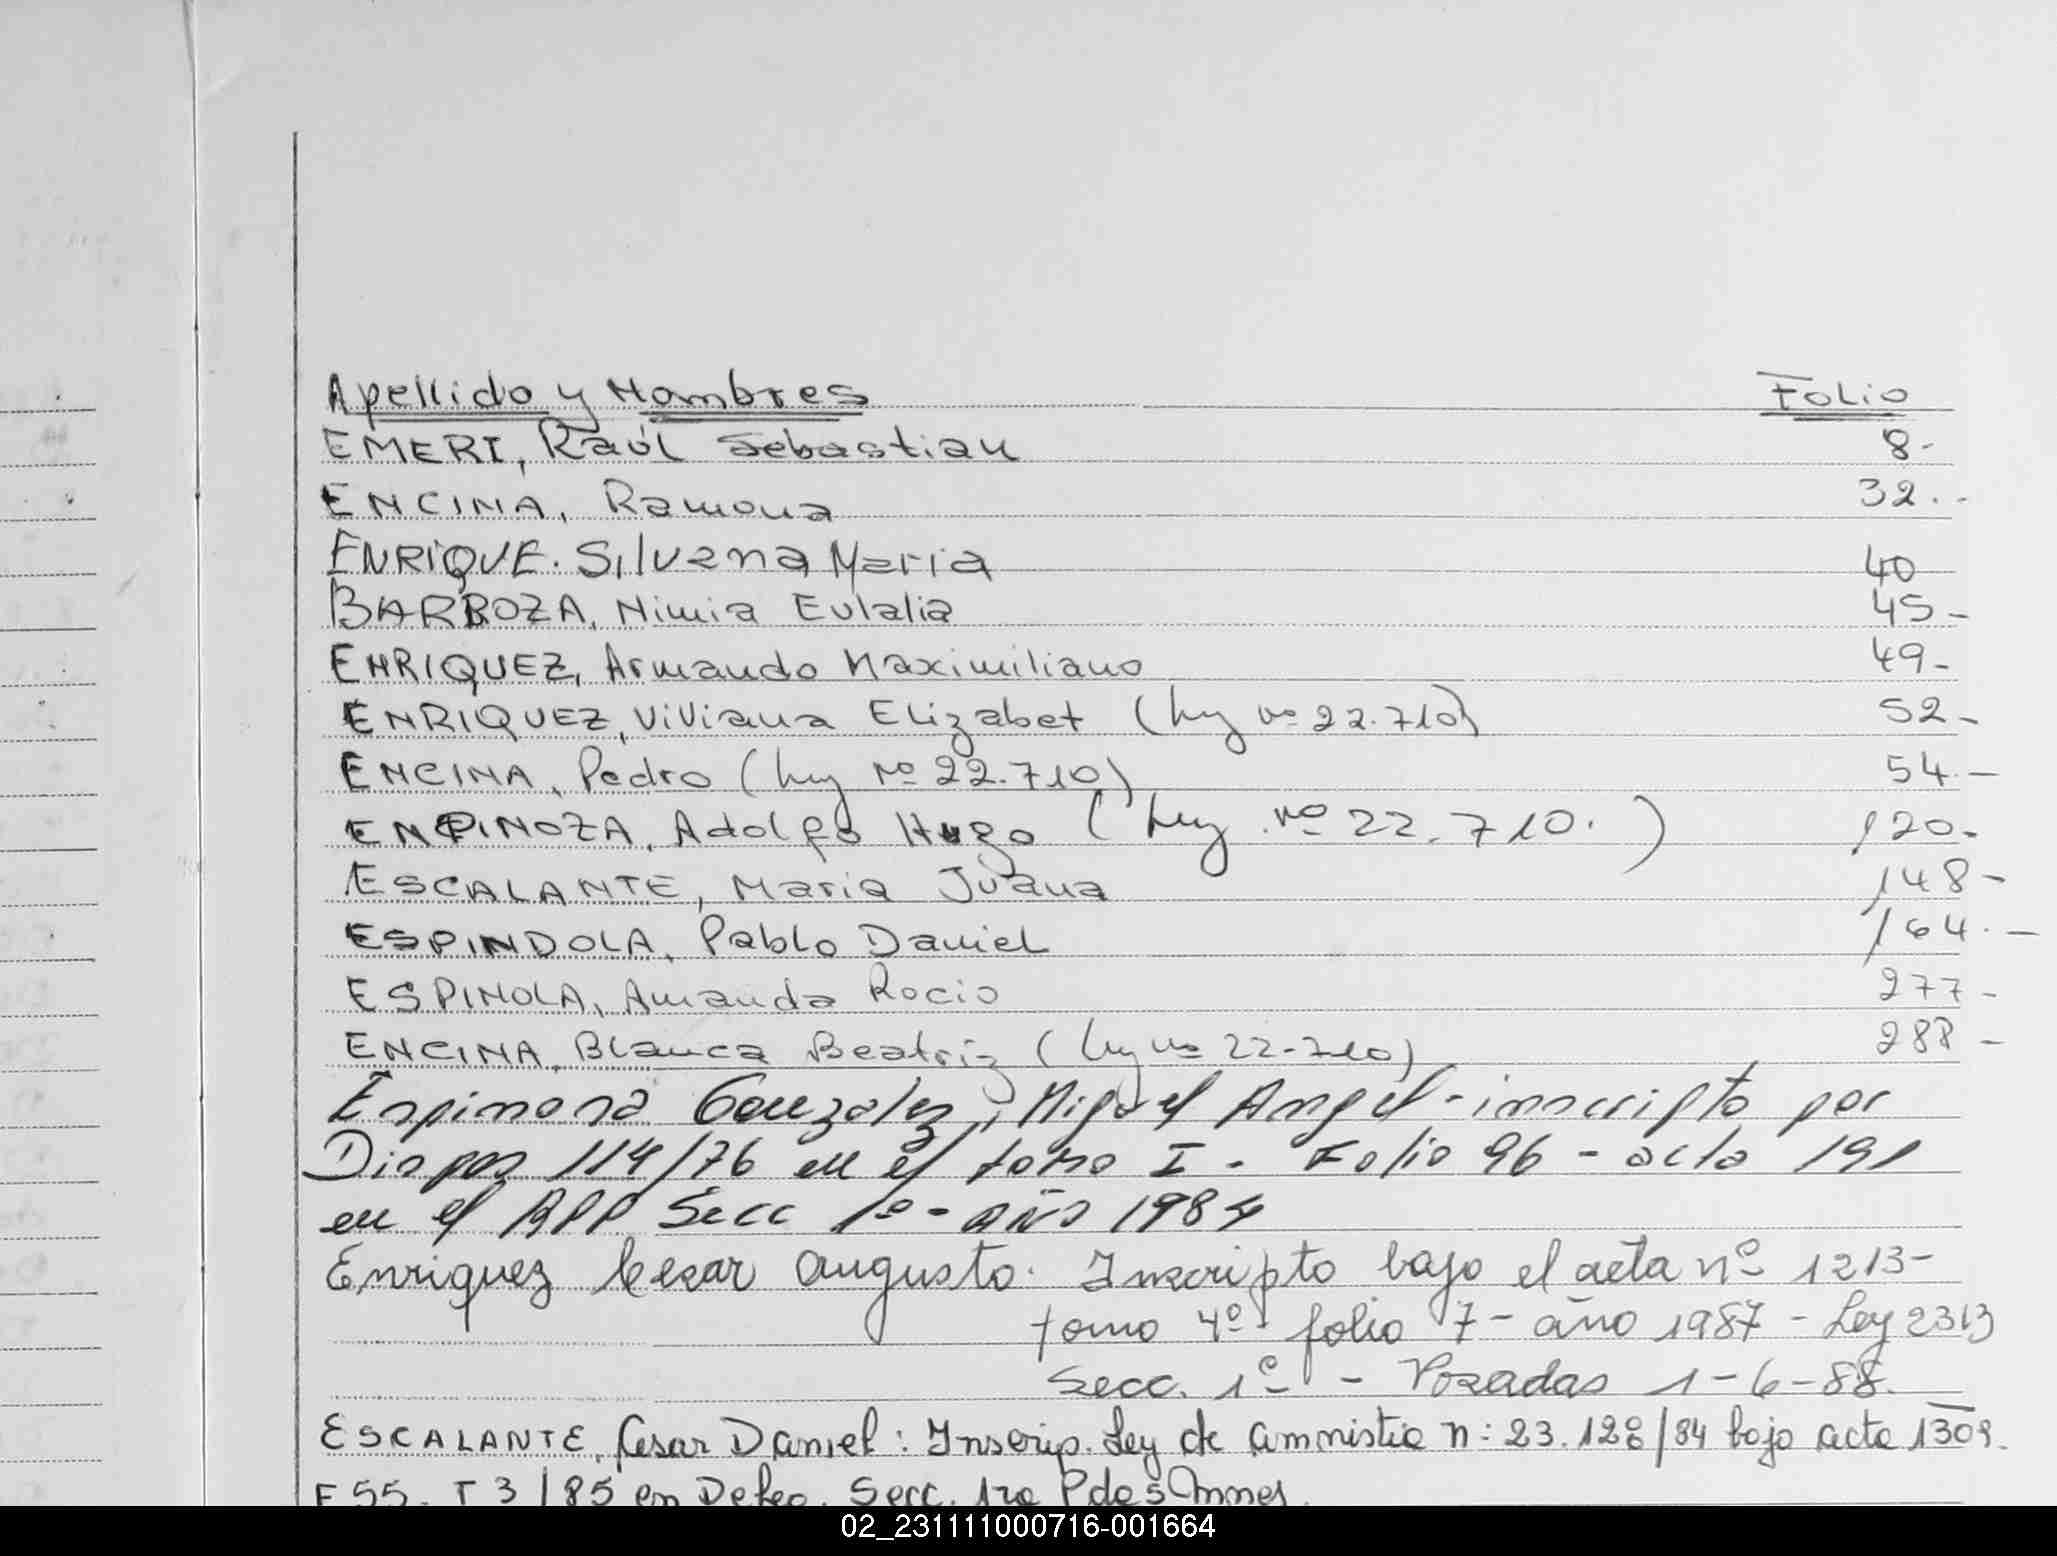 Apellido y Nombres Folio
EMERI, Raúl Sebastian 8-
ENCINA, Ramona 32.-
ENRIQUE. Silvana Maria 40
BARBOZA, Nimia Eulalia 45-
ENRIQUEZ, Armando Maximiliano 49-
ENRIQUEZ, Viviana Elizabet (Ley nº 22.710) 52-
ENCINA, Pedro (Ley Nº 22.710) 54.-
ENPINOZA, Adolfo Hugo (Ley nº 22.710.) 120-
ESCALANTE, Maria Juana 148-
ESPINDOLA, Pablo Daniel 164.-
ESPINOLA, Amanda Rocio 277-
ENCINA, Blanca Beatriz (Ley nº 22.710) 288-
Espinosa Gonzalez, Miguel Angel - inscripto por
Dispos 114/76 en el tomo I - Folio 96 - acta 191
en el RPP Secc 1º - año 1984
Enriquez Cesar Augusto. Inscripto bajo el acta nº 1213-
tomo 4º folio 7 - año 1987 - Ley 2313
Secc. 1º - Posadas 1-6-88.
ESCALANTE, Cesar Daniel: Inscrip. Ley de Ammistia n: 23.128/84 bajo acta 1309.
F 55. T 3/85 en Defec. Secc. 1ra Pdas Mnes.
02_231111000716-001664